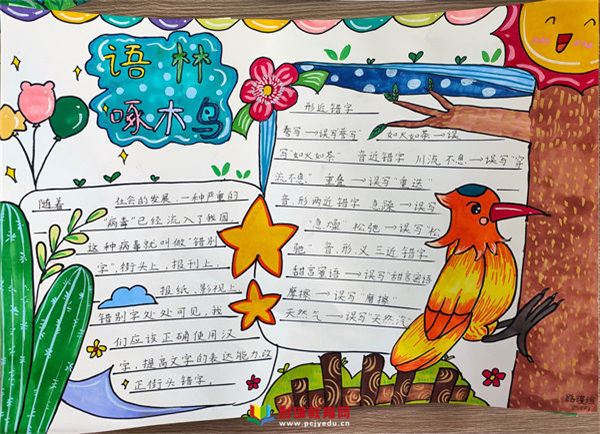 语林
啄木鸟
随着 社会的发展,一种严重的
"病毒"已经流入了我国,
这种病毒就叫做"错别
字",街头上,报刊上,
报纸、影视上,
错别字处处可见,我
们应该正确使用汉
字,提高文字的表达能力,改
正街头错字。
形近错字
誊写→误写誉写" 如火如荼→误
写"如火如茶" 音近错字 川流不息→误写"穿
流不息" 重叠→误写"重迭"
音,形两近错字 急躁→误写
"急燥" 松弛→误写"松
驰" 音,形,义三近错字
甜言蜜语→误写"甜言密语
摩擦→误写"磨擦"
天然气→误写"天然汽"
教育网
www.pcjyedu.cn